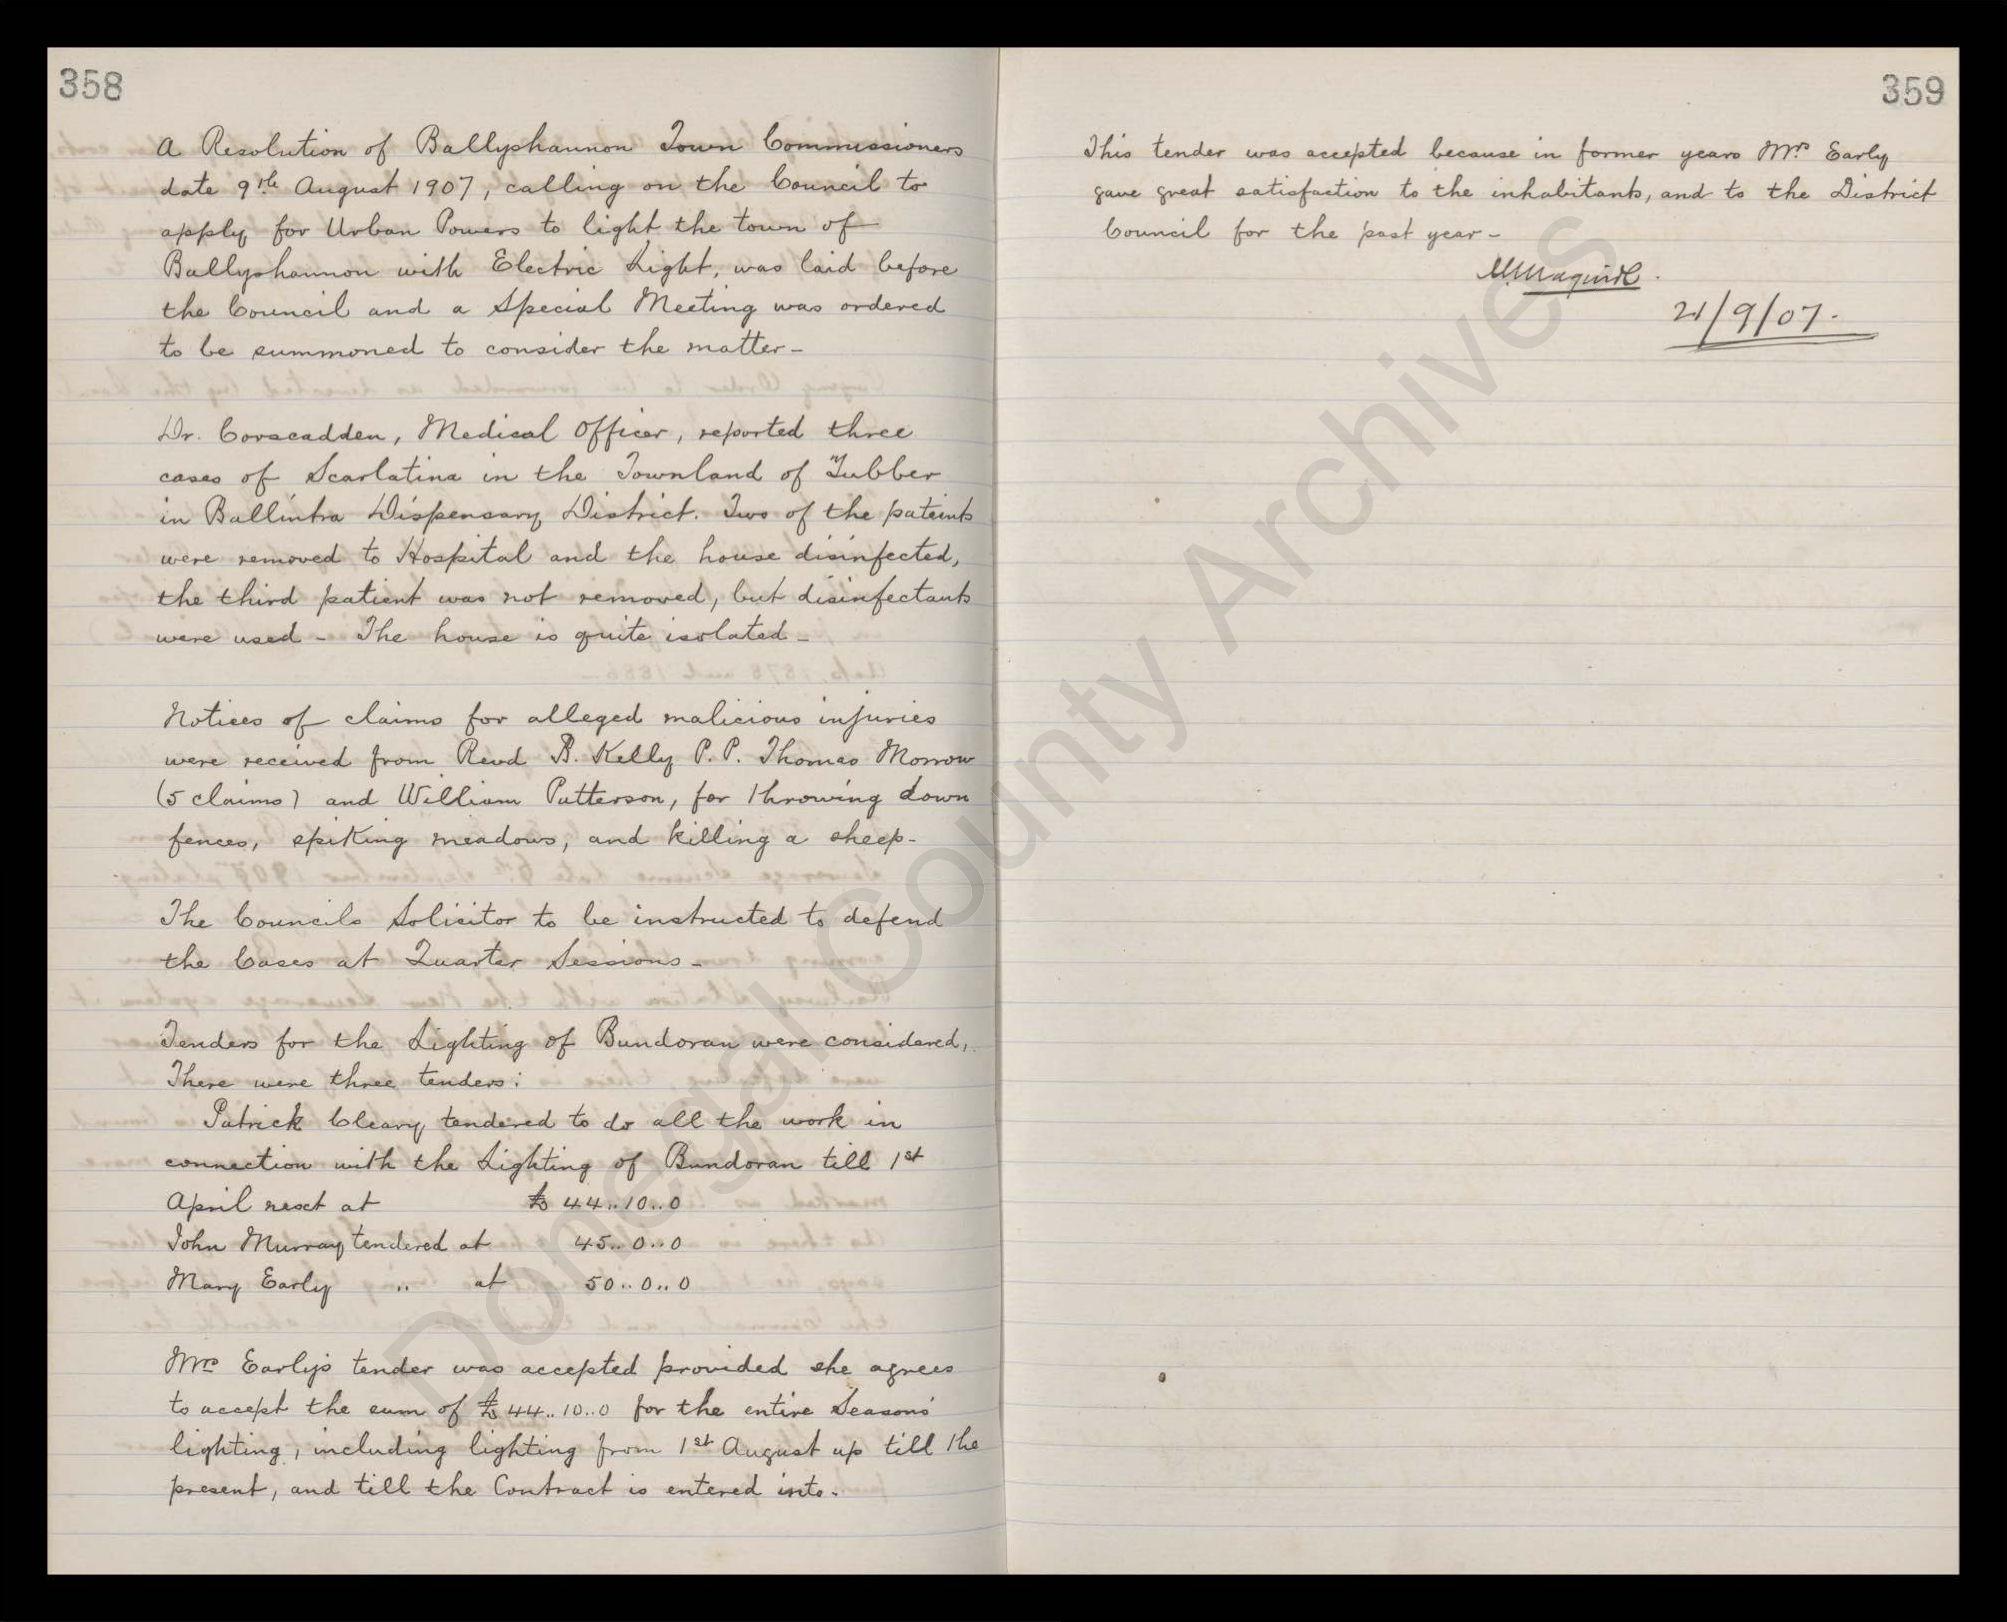 358
A Resolution of Ballyshannon Town Commissioners
date 9th August 1907, calling on the Council to
apply for Urban Powers to light the town of
Ballyshannon with Electric Light, was laid before
the Council and a Special Meeting was ordered
to be summoned to consider the matter -
Dr. Corscadden, Medical Officer, reported three
cases of Scarlatina in the Townland of Tubber
in Ballintra Dispensary District. Two of the pateints
were removed to Hospital and the house disinfected,
the third patient was not removed, but disinfectants
were used - The house is quite isolated -
Notices of claims for alleged malicious injuries
were received from Revd B. Kelly P.P. Thomas Morrow
(5 claims) and William Patterson, for throwing down
fences, spiking meadows, and killing a sheep -
The Councils Solicitor to be instructed to defend
the Cases at Quarter Sessions -
Tenders for the Lighting of Bundoran were considered,
There were three tenders:
Patrick Cleary tendered to do all the work in
connection with the Lighting of Bundoran till 1st
April next at £44..10..0
John Murray tendered at 45..0..0
Mary Early " at 50..0..0
Mrs Early's tender was accepted provided she agrees
to accept the sum of £44..10..0 for the entire Seasons'
lighting, including lighting from 1st August up till the
present, and till the Contract is entered into.
359
This tender was accepted because in former years Mrs Early
gave great satisfaction to the inhabitants, and to the District
Council for the past year -
21/9/07.
Donegal County Archives